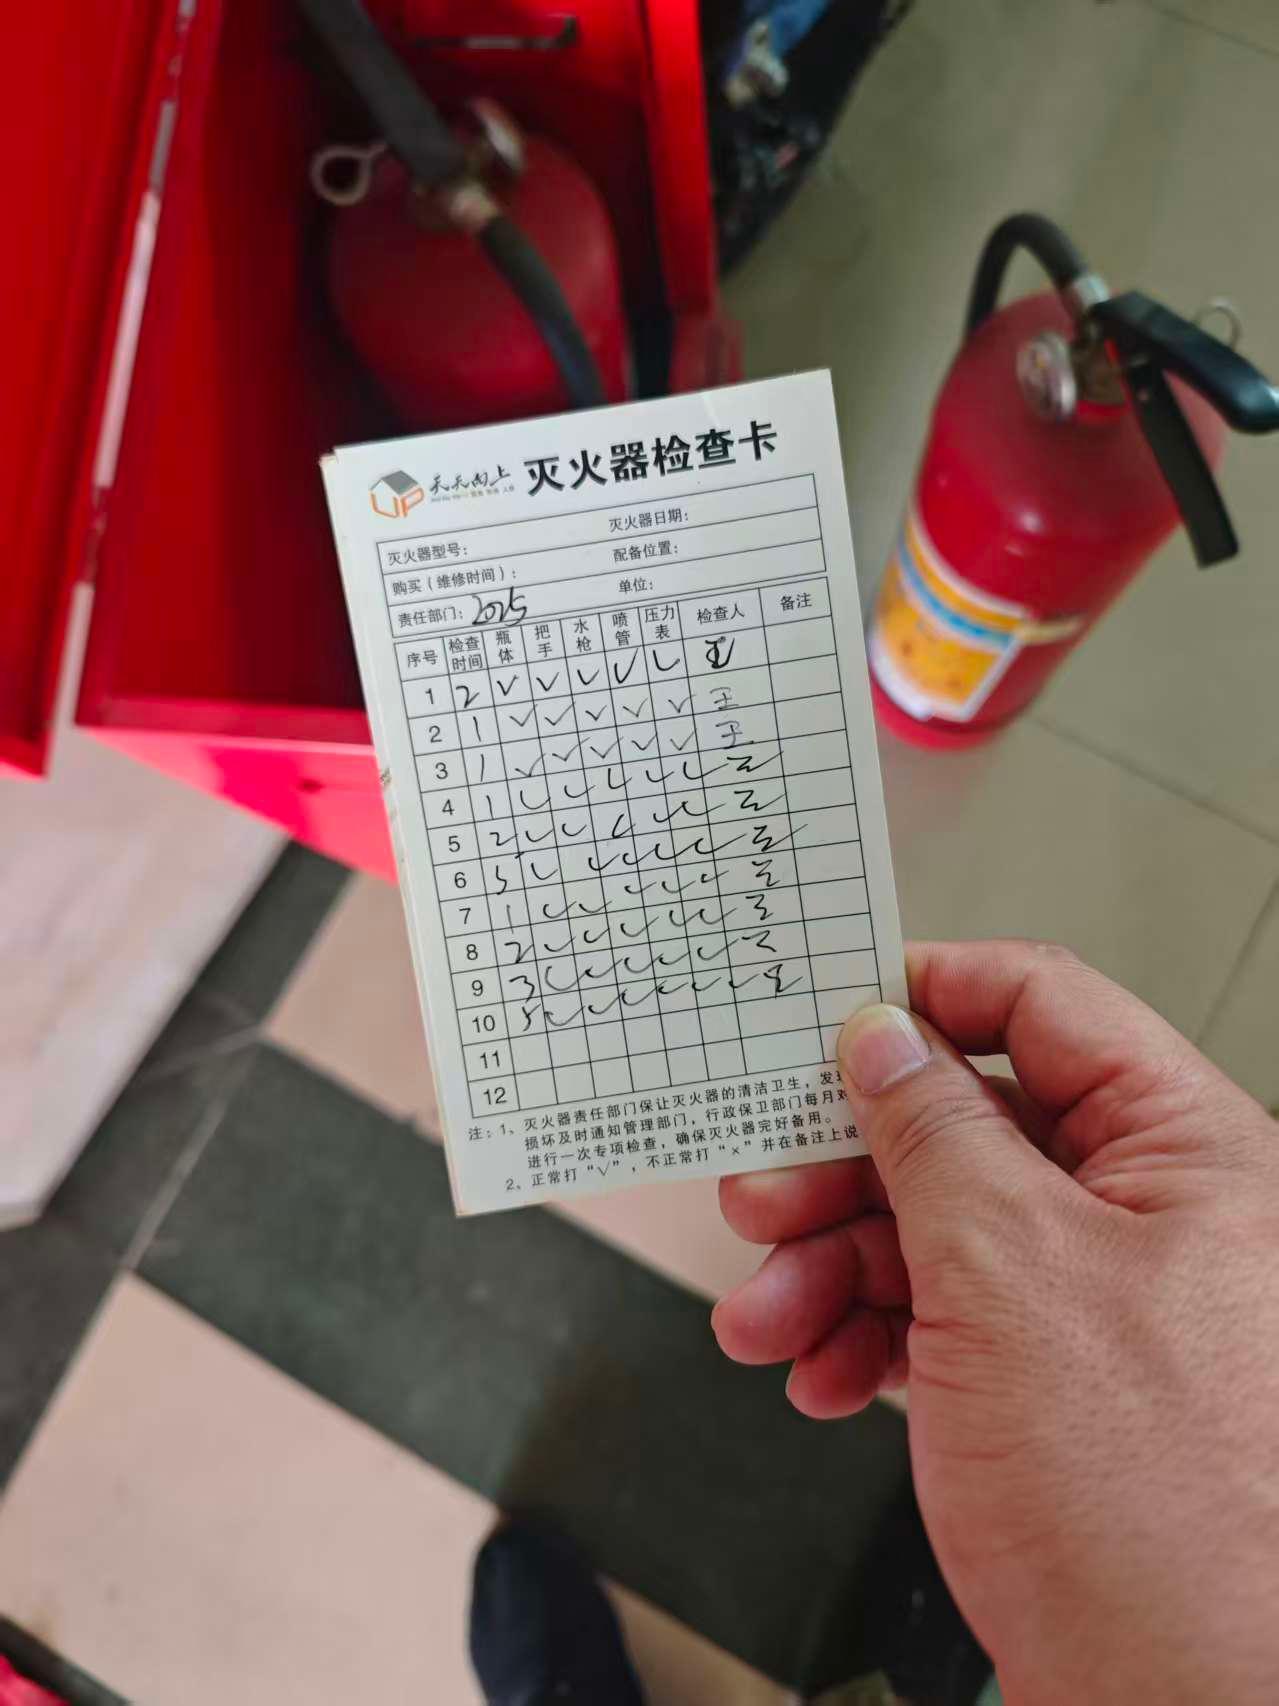 UP 天天向上 灭火器检查卡
灭火器型号： 灭火器日期：
购买（维修时间）： 配备位置：
责任部门：2025 单位：
序号 检查时间 瓶体 把手 水枪 喷管 压力表 检查人 备注
1 2 √ √ √ √ √ 王
2 1 √ √ √ √ √ 王
3 1 √ √ √ √ √ 王
4 1 √ √ √ √ √ 王
5 2 √ √ √ √ √ 王
6 5 √ √ √ √ √ 王
7 1 √ √ √ √ √ 王
8 2 √ √ √ √ √ 王
9 3 √ √ √ √ √ 王
10 5 √ √ √ √ √ √ 王
11
12
注：1、灭火器责任部门保让灭火器的清洁卫生，发现
损坏及时通知管理部门，行政保卫部门每月对
进行一次专项检查，确保灭火器完好备用。
2、正常打“√”，不正常打“×”并在备注上说